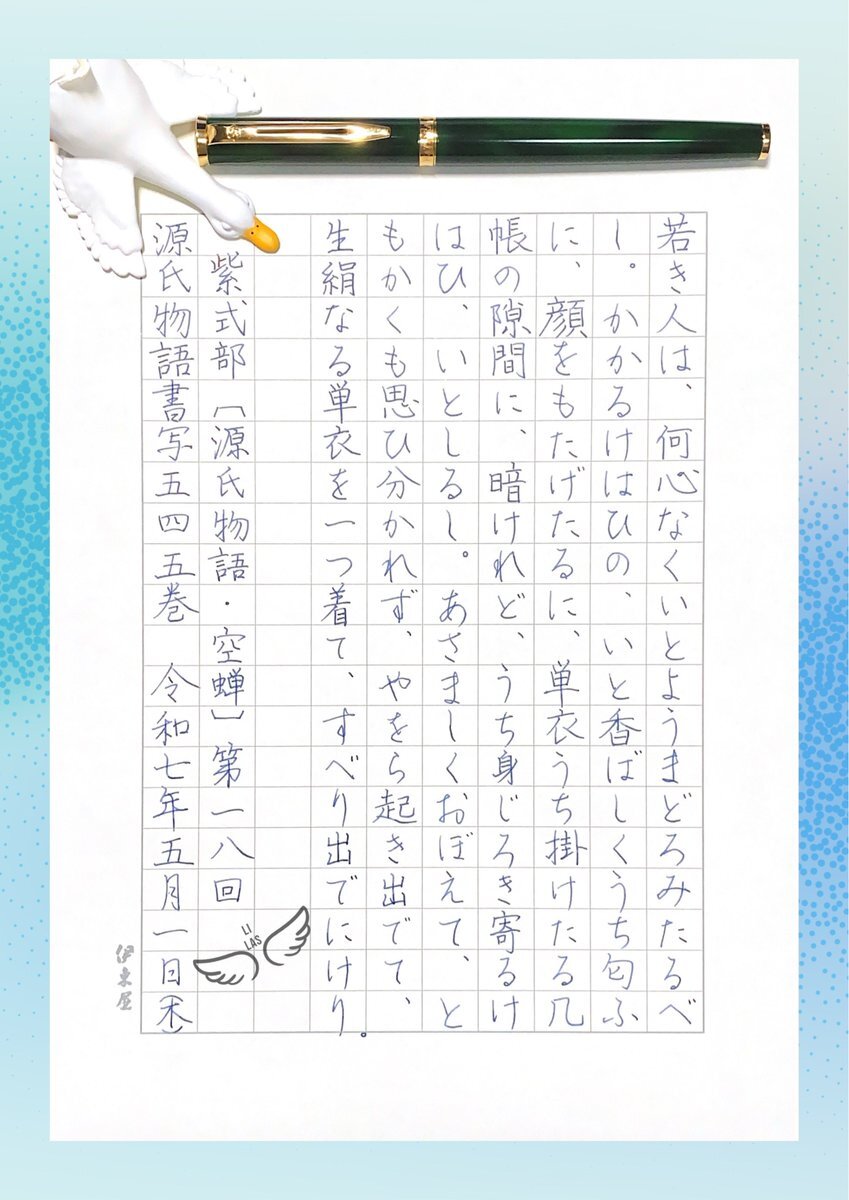 若き人は、何心なくいとようまどろみたるべ
し。かかるけはひの、いと香ばしくうち匂ふ
に、顔をもたげたるに、単衣うち掛けたる几
帳の隙間に、暗けれど、うち身じろき寄るけ
はひ、いとしるし。あさましくおぼえて、と
もかくも思ひ分かれず、やをら起き出でて、
生絹なる単衣を一つ着て、すべり出でにけり。
紫式部〔源氏物語・空蝉〕第一八回
源氏物語書写五四五巻　令和七年五月一日(木)
LI
LAS
伊東屋